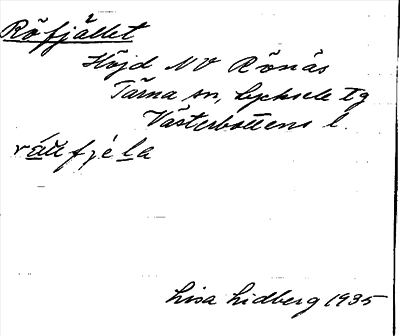 Röfjället
Höjd NV Rönäs
Tärna sn, Lycksele tg
Västerbottens l.
Lisa Lidberg 1935